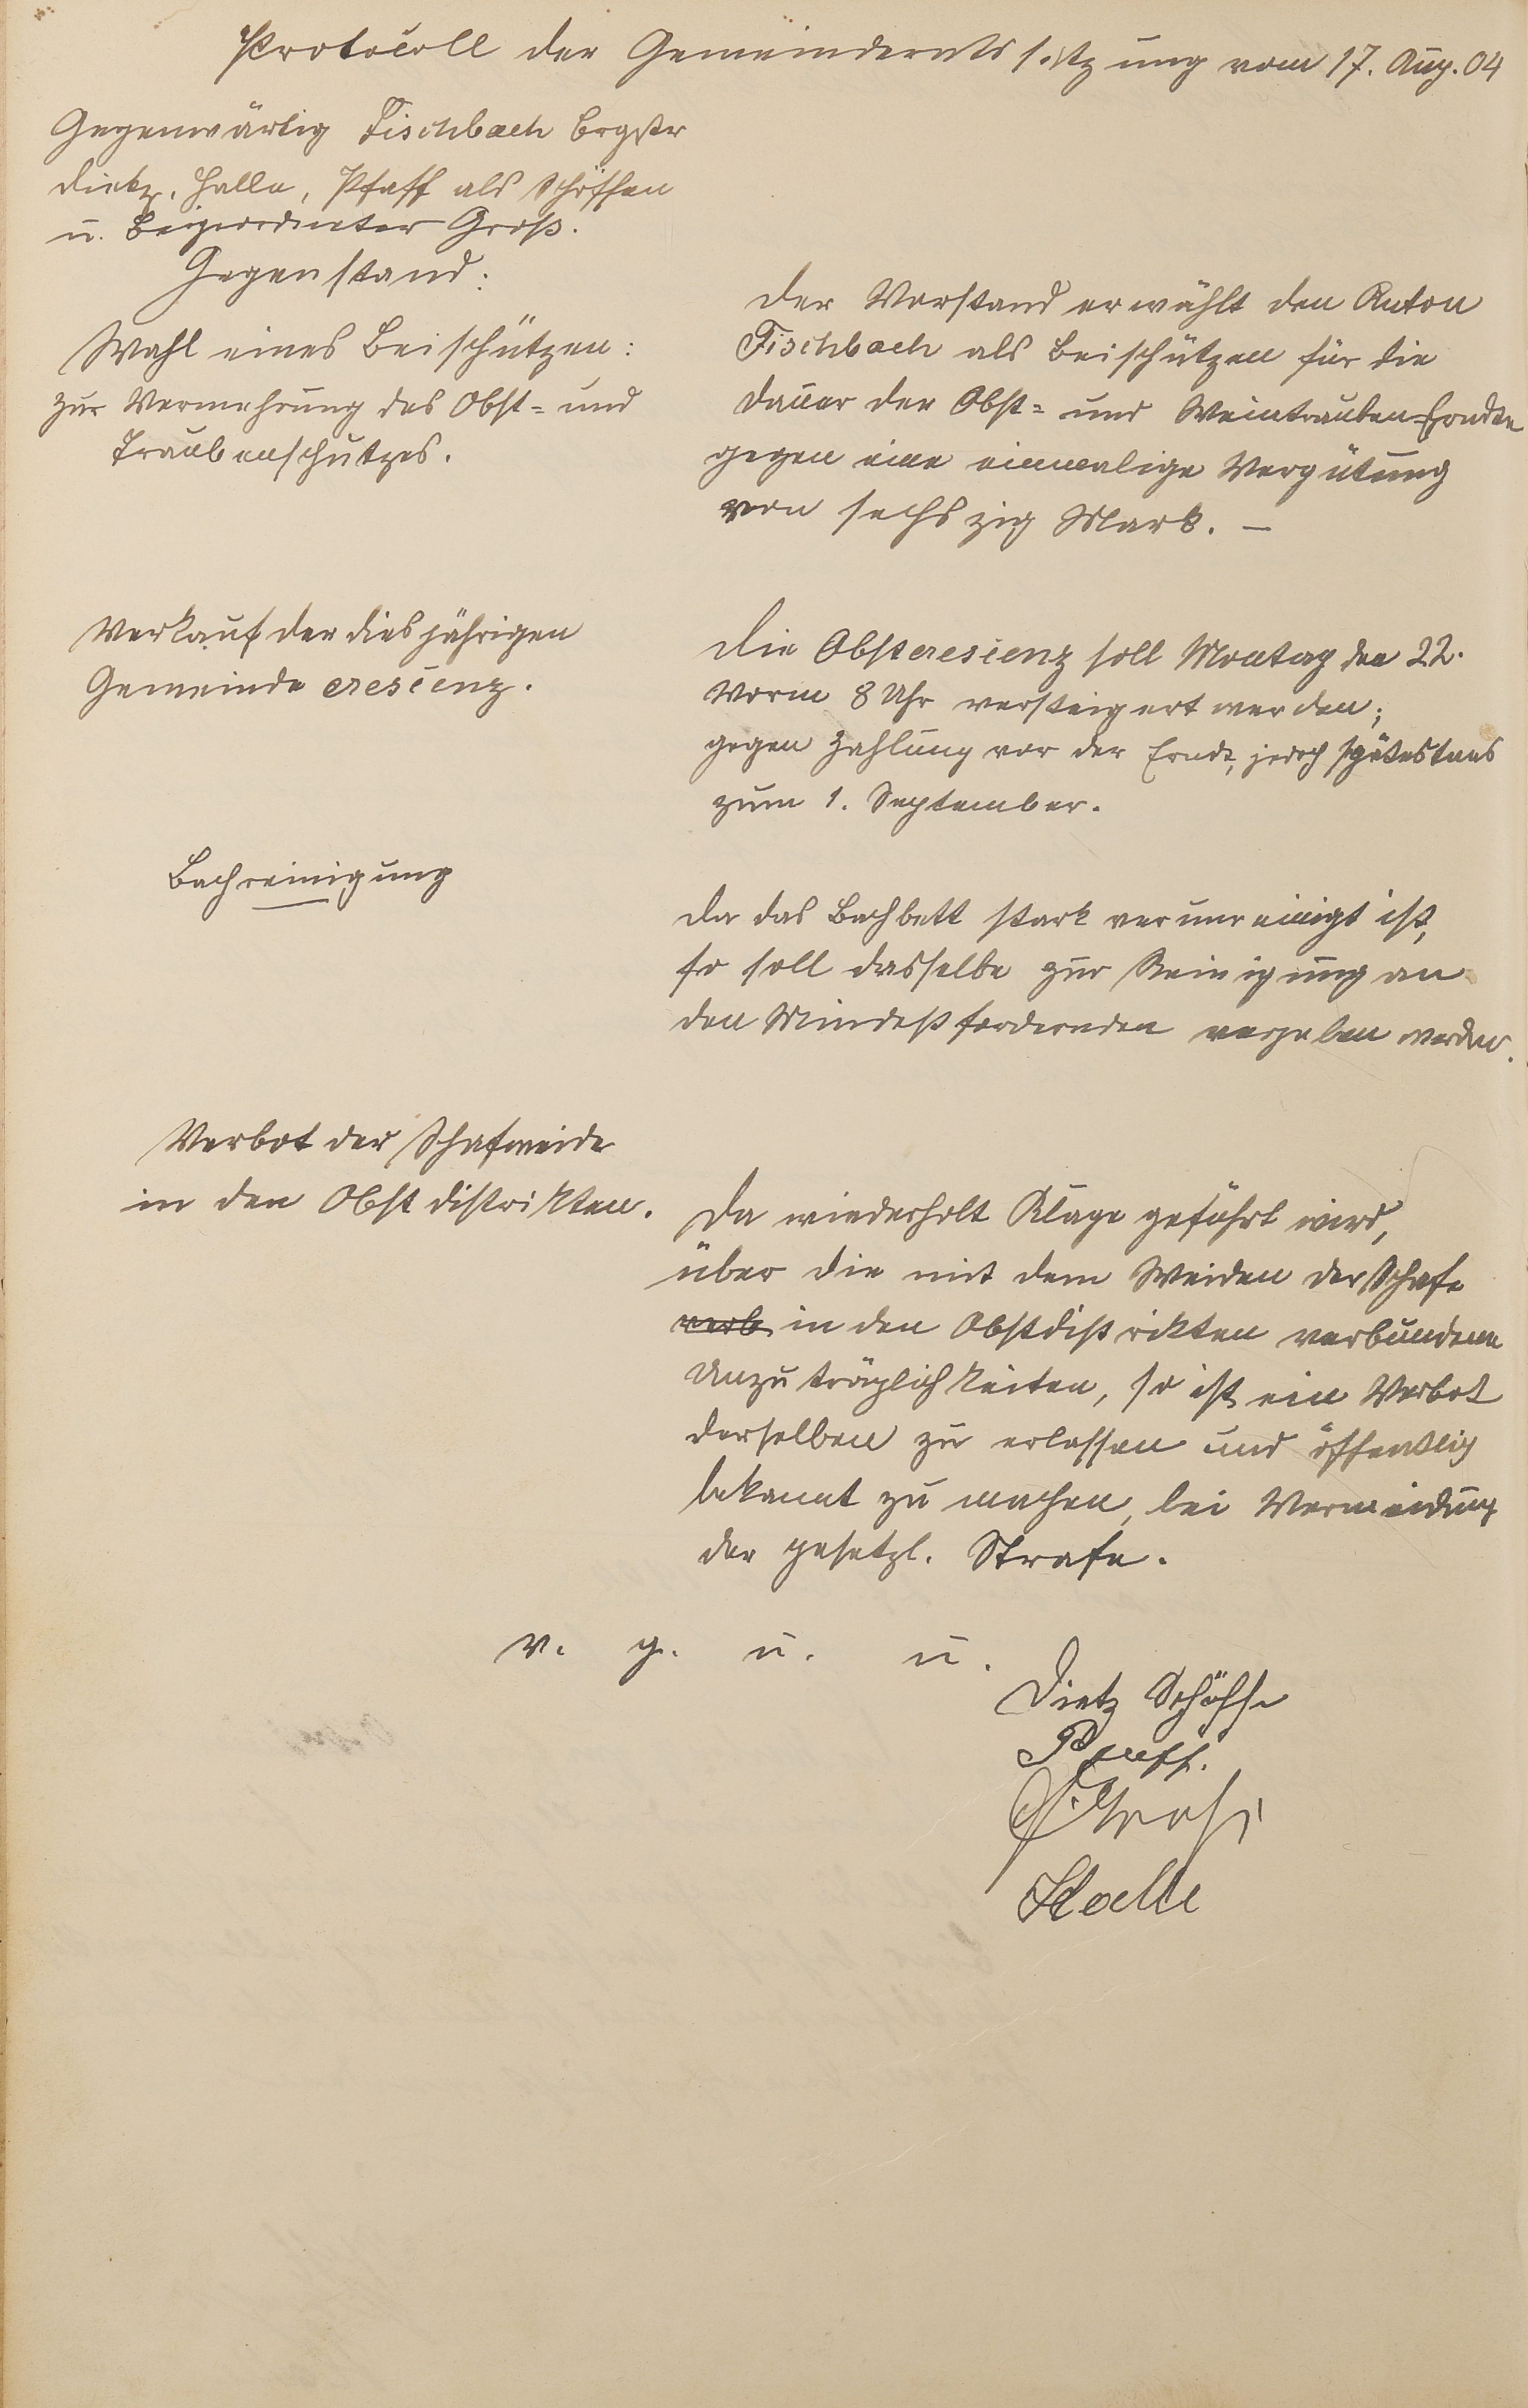 Protocoll der Gemeinderatssitzung vom 17. Aug. 04
Gegenwärtig Fischbach Brgstr
Dietz, Halle, Pfaff als Schöffen
u. Beigeordneter Groß.
Gegenstand:
Wahl eines Beischützen:
zur Vermehrung des Obst- und
Traubenschutzes.
Der Vorstand erwählt den Anton
Fischbach als Beischützen für die
Dauer der Obst- und Weintrauben-Erndte
gegen eine einmalige Vergütung
von sechszig Mark. –
Verkauf der diesjährigen
Gemeinde crescenz.
Die Obstcrescenz soll Montag den 22.
Vorm 8 Uhr versteigert werden;
gegen Zahlung vor der Erndte, jedoch spätestens
zum 1. September.
Bachreinigung
Da das Bachbett stark verunreinigt ist,
so soll dasselbe zur Reinigung an
den Mindestfordernden vergeben werden.
Verbot der Schafweide
in den Obstdistrikten.
Da wiederholt Klage geführt wird,
über die mit dem Weiden der Schafe
verb in den Obstdistrikten verbundenen
Unzuträglichkeiten, so ist ein Verbot
derselben zu erlassen und öffentlich
bekannt zu machen, bei Vermeidung
der gesetzl. Strafe.
v. g. u. u.
Dietz Schöffe
Pfaff.
Groß
Halle